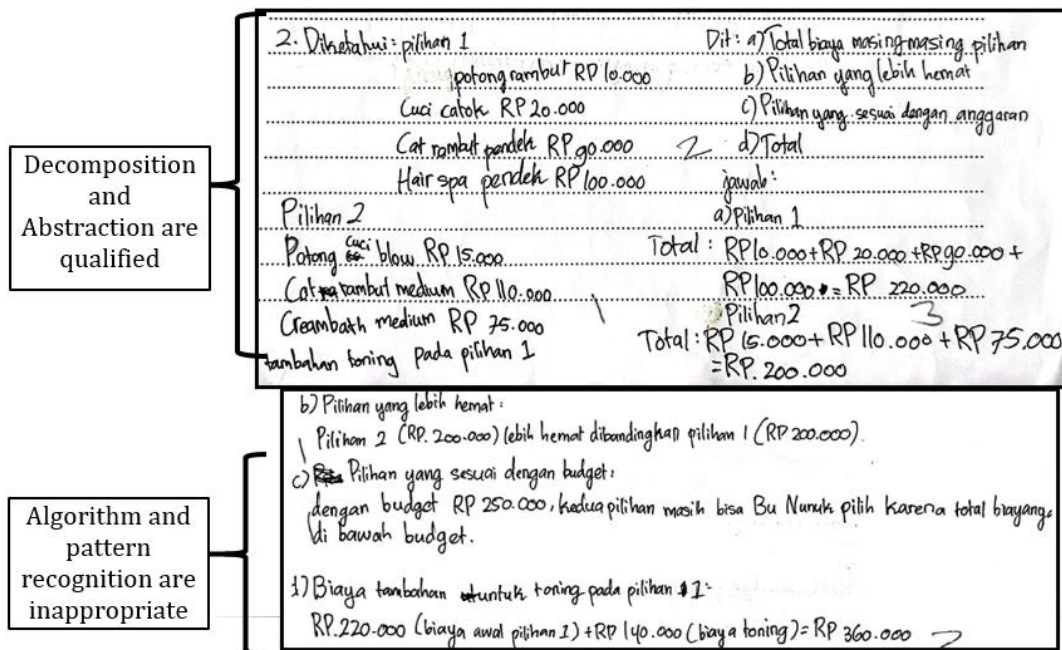 Decomposition
and
Abstraction are
qualified
2. Diketahui: pilihan 1
potong rambut RP 10.000
Cuci catok RP 20.000
Cat rambut pendek RP 90.000 2
Hair spa pendek RP 100.000
Pilihan 2
Potong cuci blow RP 15.000
Cat rambut medium RP 110.000
Creambath medium RP 75.000 1
tambahan toning pada pilihan 1
Dit: a) Total biaya masing-masing pilihan
b) Pilihan yang lebih hemat
c) Pilihan yang sesuai dengan anggaran
d) Total
jawab:
a) Pilihan 1
Total: RP 10.000 + RP 20.000 + RP 90.000 +
RP 100.000 = RP 220.000
Pilihan 2 3
Total: RP 15.000 + RP 110.000 + RP 75.000
= RP. 200.000
Algorithm and
pattern
recognition are
inappropriate
b) Pilihan yang lebih hemat:
1 Pilihan 2 (RP. 200.000) lebih hemat dibandingkan pilihan 1 (RP 200.000).
c) Pilihan yang sesuai dengan budget:
dengan budget RP 250.000, kedua pilihan masih bisa Bu Nunuk pilih karena total biayanya
di bawah budget.
d) Biaya tambahan untuk toning pada pilihan 1:
RP. 220.000 (biaya awal pilihan 1) + RP 140.000 (biaya toning) = RP 360.000 2